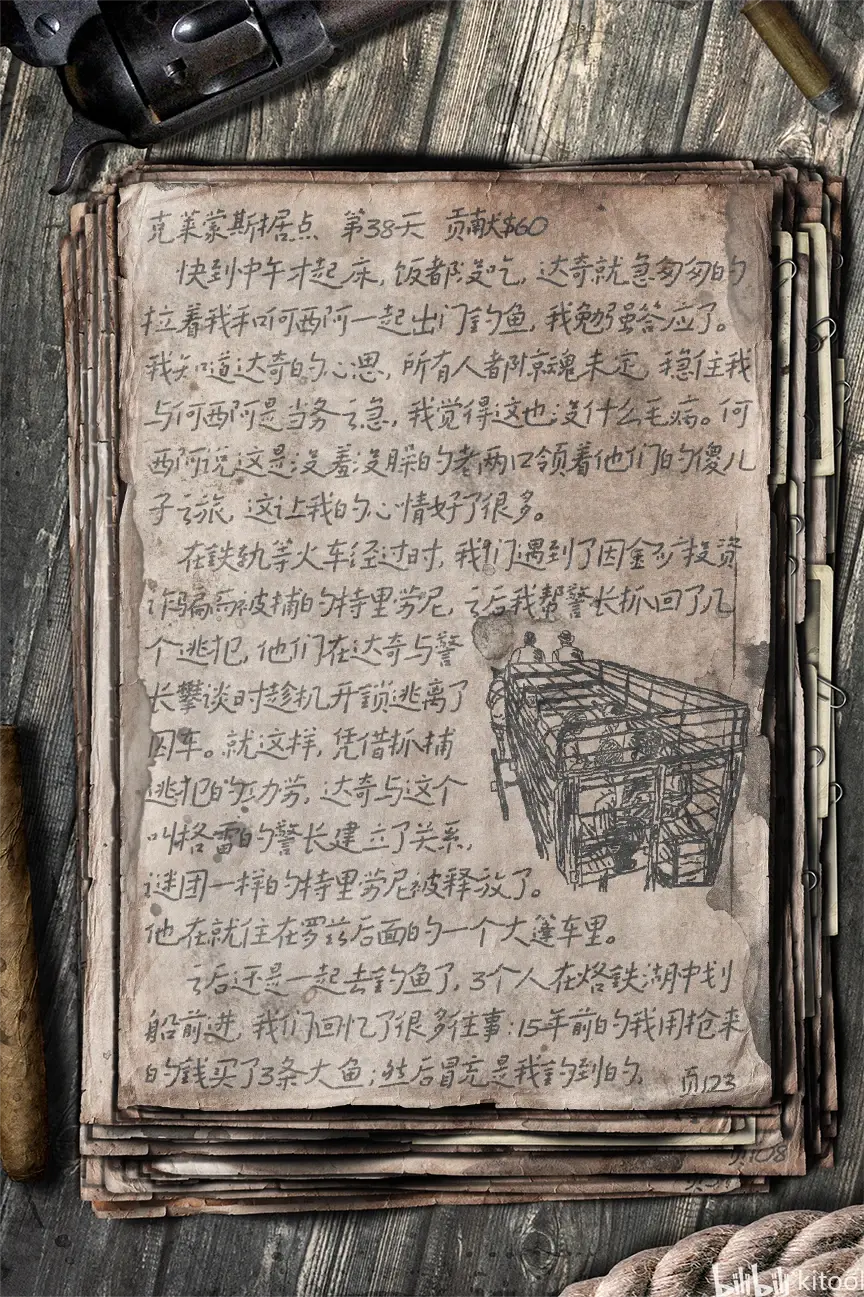 克莱蒙斯据点 第38天 贡献$60
快到中午才起床,饭都没吃,达奇就急匆匆的
拉着我和何西阿一起出门钓鱼,我勉强答应了。
我知道达奇的心思,所有人都惊魂未定,稳住我
与何西阿是当务之急,我觉得这也没什么毛病。何
西阿说这是没羞没臊的老两口领着他们的傻儿
子之旅,这让我的心情好了很多。
在铁轨等火车经过时,我们遇到了因金矿投资
诈骗而被捕的特里劳尼,之后我帮警长抓回了几
个逃犯,他们在达奇与警
长攀谈时趁机开锁逃离了
囚车。就这样,凭借抓捕
逃犯的功劳,达奇与这个
叫格雷的警长建立了关系,
谜团一样的特里劳尼被释放了。
他在就住在罗兹后面的一个大篷车里。
之后还是一起去钓鱼了,3个人在烙铁湖中划
船前进,我们回忆了很多往事:15年前的我用抢来
的钱买了3条大鱼;然后冒充是我钓到的,
页123
页108
bilibili kitool